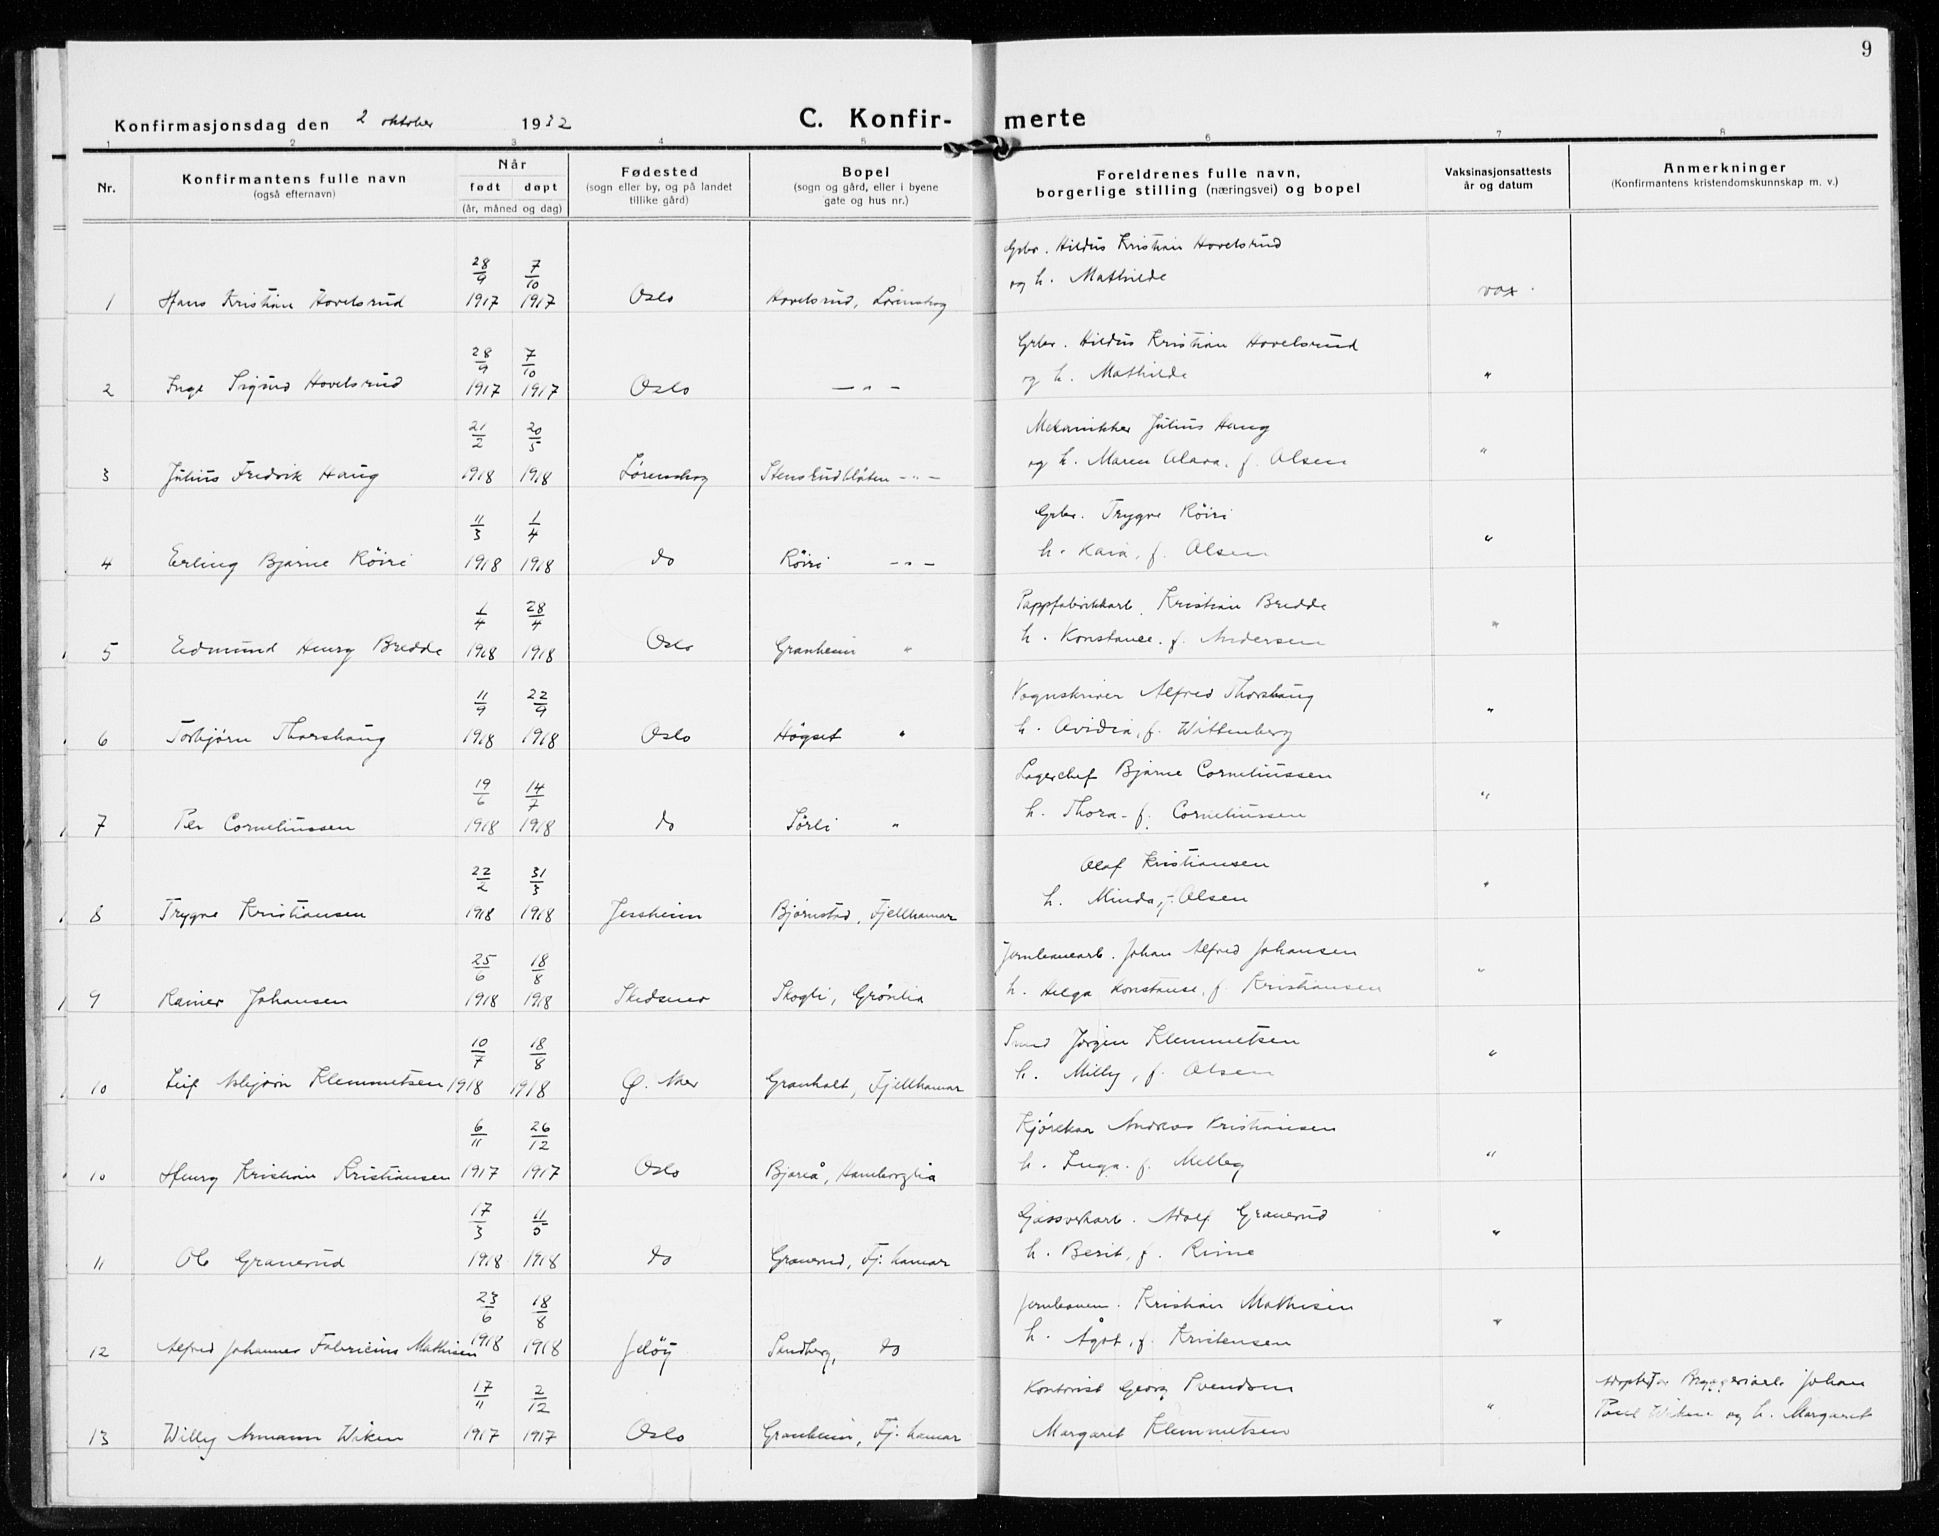 9
Konfirmasjonsdag den 2 oktober 1932
C. Konfir- merte
1 2 3 4 5 6 7 8
Nr.
Konfirmantens fulle navn
(også efternavn)
Når
født døpt
(år, måned og dag)
Fødested
(sogn eller by, og på landet
tillike gård)
Bopel
(sogn og gård, eller i byene
gate og hus nr.)
Foreldrenes fulle navn,
borgerlige stilling (næringsvei) og bopel
Vaksinasjonsattests
år og datum
Anmerkninger
(Konfirmantens kristendomskunnskap m. v.)
28/9 7/10 Grbr. Hildus Kristian Hovelsrud
og h. Mathilde
1 Hans Kristian Hovelsrud 1917 1917 Oslo Hovelsrud, Lørenskog vax.
28/9 7/10 Grbr. Hildus Kristian Hovelsrud
og h. Mathilde
2 Inge Sigurd Hovelsrud 1917 1917 Oslo — " — "
21/2 20/5 Mekanikker Julius Haug
og h. Maren f. Olsen
3 Julius Fredrik Haug 1918 1918 Lørenskog Stensrudblåten - " - "
11/3 1/4 Grbr. Trygve Röiri
h. Kaia, f. Olsen
4 Erling Bjarne Röiri 1918 1918 do Röiri - " - "
1/4 28/4 Pappfabrikkarb. Kristian Bredde
h. Konstance. f. Andersen
5 Edmund Henry Bredde 1918 1918 Oslo Granheim " "
11/9 22/9 Vognskriver Alfred Thorshaug
h. Ovidia, f. Wittenberg
6 Torbjørn Thorshaug 1918 1918 Oslo Högset " "
19/6 14/7 Lagerchef Bjarne Corneliussen
h. Thora - f. Corneliussen
7 Per Corneliussen 1918 1918 do Sörli " "
22/2 31/3 Olaf Kristiansen
h. Minda, f. Olsen
8 Trygve Kristiansen 1918 1918 Jessheim Bjørnstad, Fjellhamar "
25/6 18/8 Jernbanearb. Johan Alfred Johansen
h. Helga Konstanse, f. Kristiansen
9 Rainer Johansen 1918 1918 Skedsmo Skogli, Grönlia "
10/7 18/8 Smed Jørgen Klemmetsen
h. Milly, f. Olsen
10 Leif Asbjørn Klemmetsen 1918 1918 Ø. Aker Granholt, Fjellhamar "
6/11 26/12 Kjørekar Andreas Kristiansen
h. Inga. f. Melleg
10 Henry Kristian Kristiansen 1917 1917 Oslo Bjareå, Hamborglia "
17/3 11/5 Gassverkarb. Adolf Granerud
h. Berit, f. Rime
11 Ole Granerud 1918 1918 do Granerud, Fj: hamar "
23/6 18/8 Jernbanem. Kristian Mathisen
h. Ågot, f. Kristensen
12 Alfred Johannes Fabricius Mathisen 1918 1918 Jelöy Sandberg, do "
17/11 2/12 Kontorist Georg Svendsen
Margaret Klemmetsen
13 Willy Armann Wiken 1917 1917 Oslo Granheim, Fj: hamar "
Adoptert av Bryggeriarb. Johan
Poul Wiken og h. Margaret